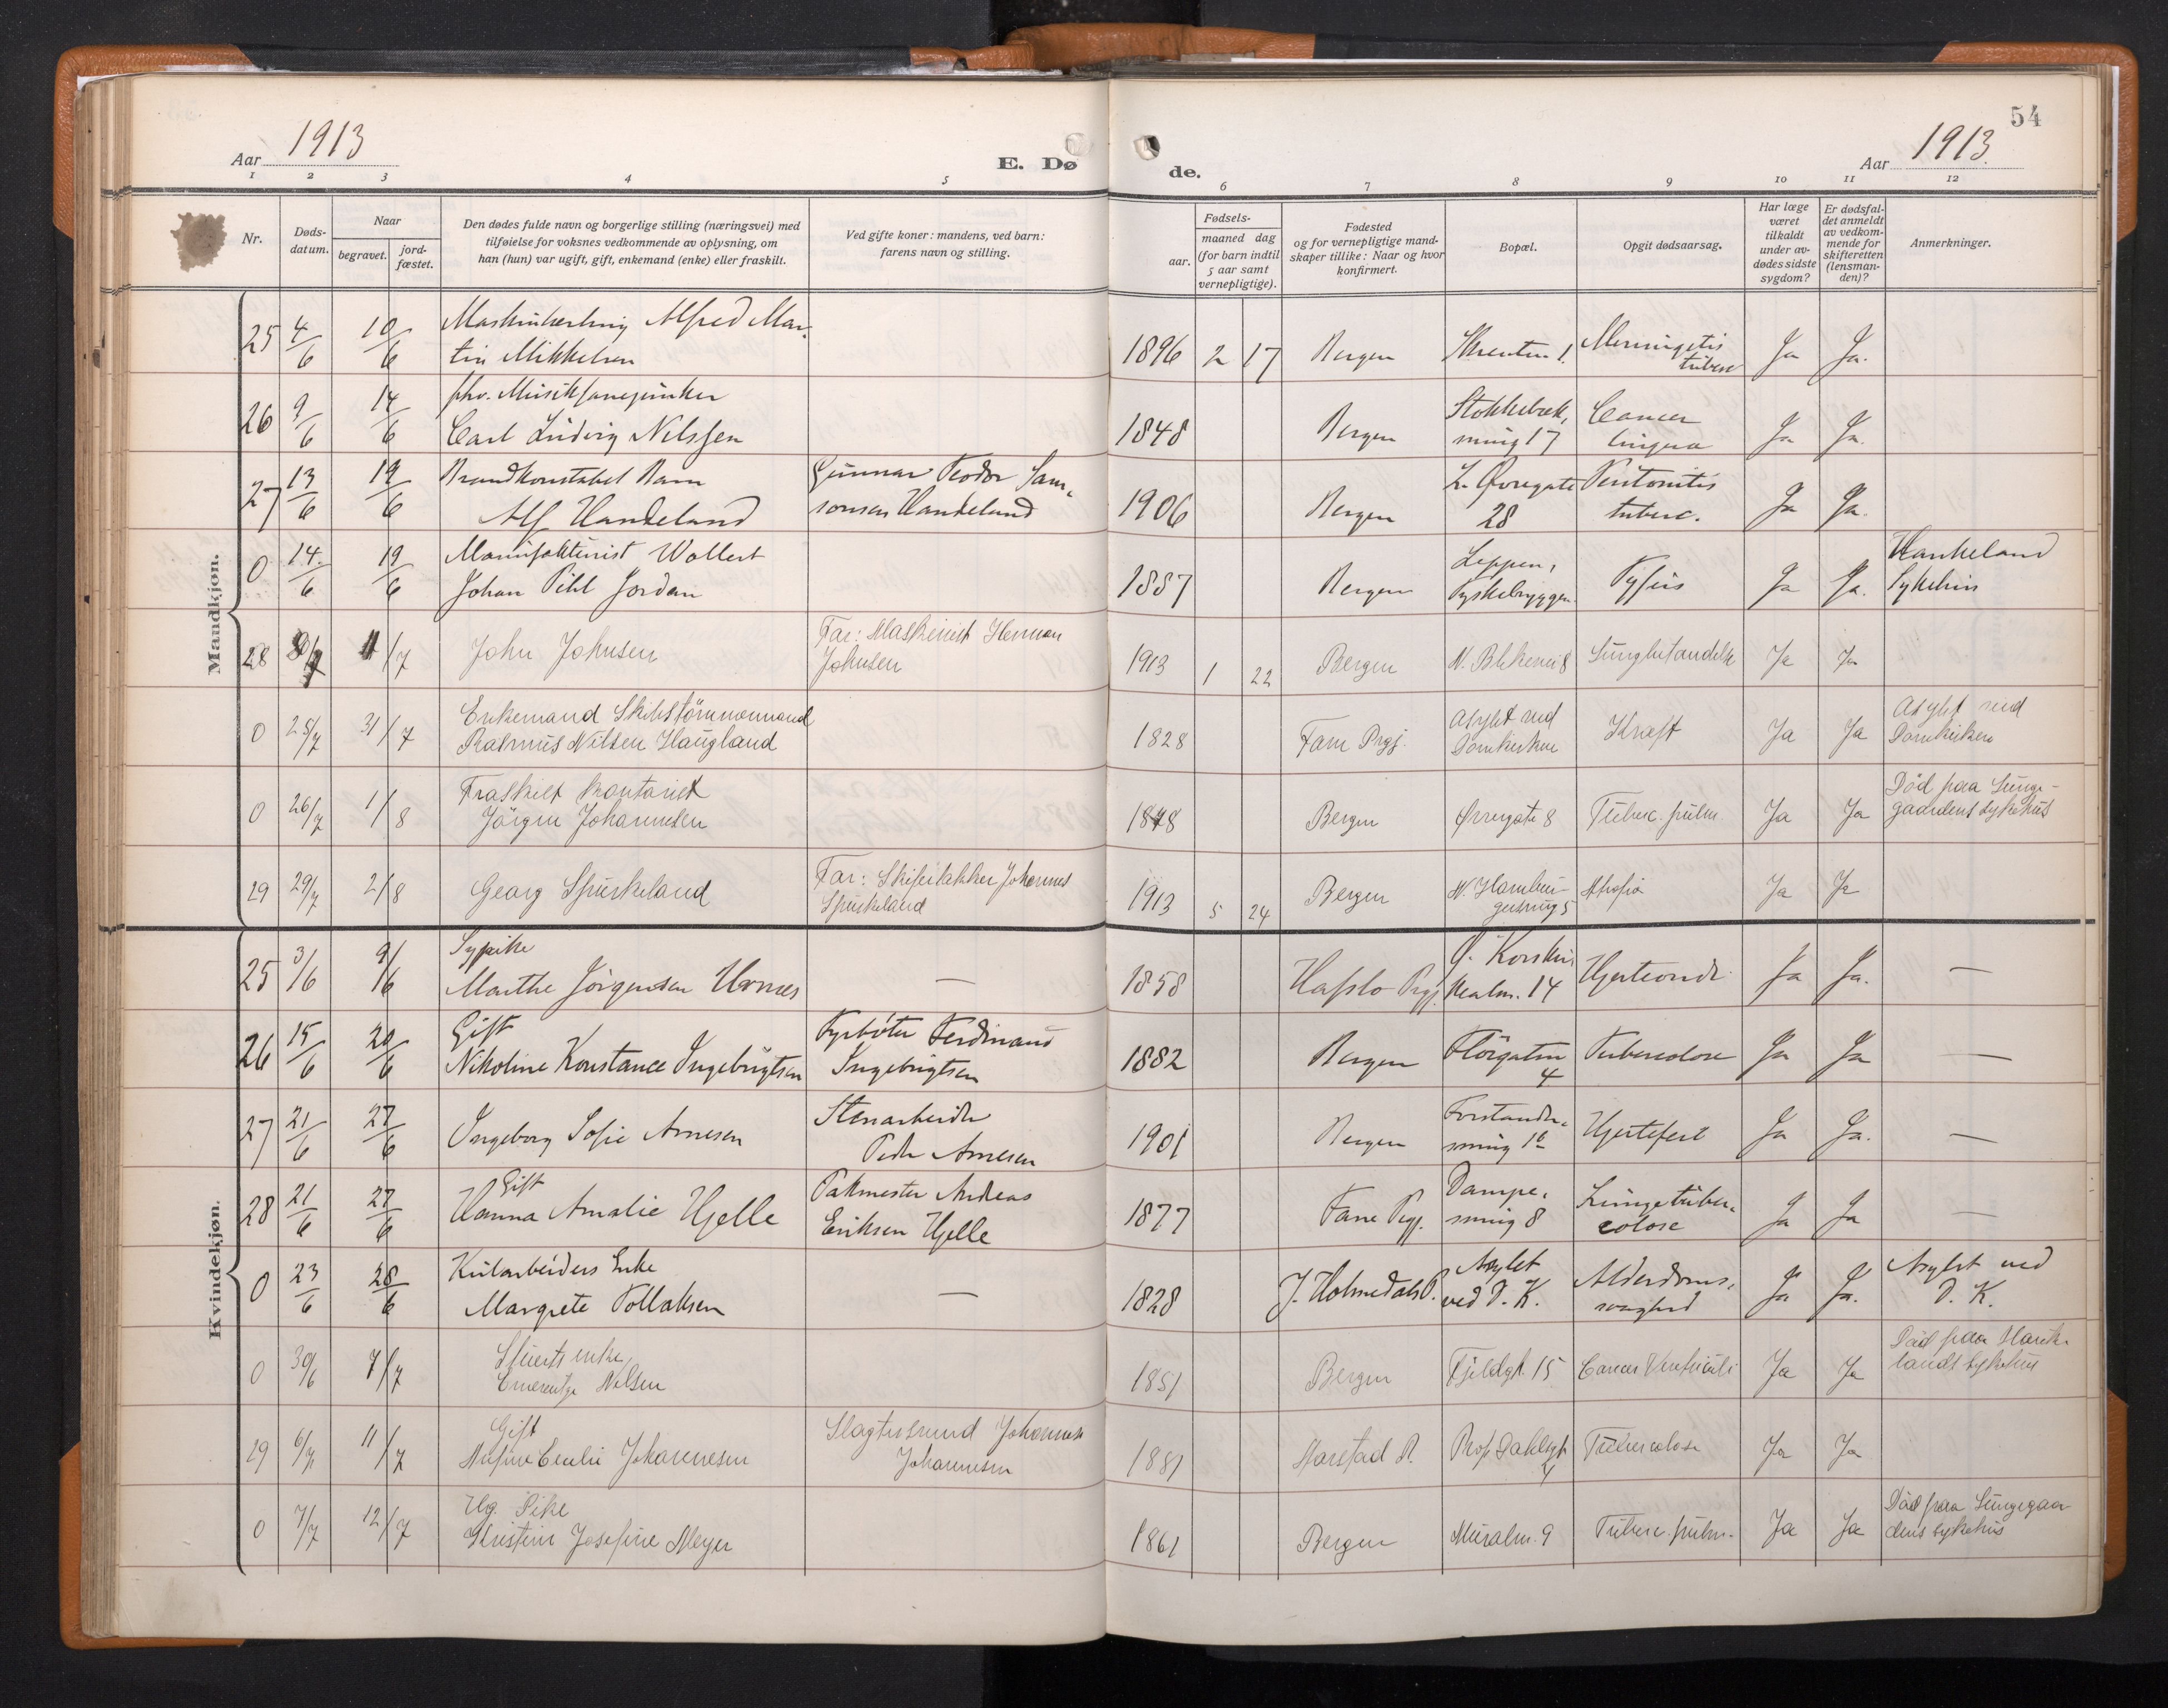 54
Aar 1913
E. Dø
de.
Aar 1913.
1 2 3 4 5 6 7 8 9 10 11 12
Nr.
Døds-
datum.
Naar
begravet.
jord-
fæstet.
Den dødes fulde navn og borgerlige stilling (næringsvei) med
tilføielse for voksnes vedkommende av oplysning, om
han (hun) var ugift, gift, enkemand (enke) eller fraskilt.
Ved gifte koner: mandens, ved barn:
farens navn og stilling.
Fødsels-
aar.
maaned dag
(for barn indtil
5 aar samt
vernepligtige).
Fødested
og for vernepligtige mand-
skaper tillike: Naar og hvor
konfirmert.
Bopæl.
Opgit dødsaarsag.
Har læge
været
tilkaldt
under av-
dødes sidste
sygdom?
Er dødsfal-
det anmeldt
av vedkom-
mende for
skifteretten
(lensman-
den)?
Anmerkninger.
Mandkjøn.
25 4/6 10/6 Alfred Mar-
tin Mikkelsen
1896 2 17 Bergen Meningitis
tuberc Ja Ja.
26 9/6 14/6 fhv.
Carl Ludvig Nilssen
1848 Bergen Stokkebæk,
smug 17 Cancer
lingua Ja Ja.
27 13/6 19/6 Brandkonstabel Barn
Alf Handeland
Gunnar Teodor Sam-
sonsen Handeland
1906 Bergen L. Øvregate
28 Peritonitis
tuberc. Ja Ja.
0 14/6 19/6 Manufakturist Wollert
Johan Pihl Jordan
1887 Bergen Leppen,
Tyskebryggen. Tyfus Ja Ja. Haukeland
Sykehus
28 /7 John Johnsen
Far: Maskinist Herman
Johnsen
1913 1 22 Bergen N. Blekevei 8 Lungbetændelse Ja Ja
0 25/7 31/7 Enkemand Skibstømmermand
Rasmus Nilsen Haugland
1828 Fane Prgj. Asylet ved
Domkirken Kræft Ja Ja Asylet ved
Domkirken
0 26/7 1/8 Fraskilt Kontorist
Jörgen Johannesen
1878 Bergen Øvregate 8 Tuberc. pulm. Ja Ja Död paa Lunge-
gaardens sykehus
29 29/7 2/8 Georg Spurkeland
Far: Skifertækker Johannes
Spurkeland
1913 5 24 Bergen N. Hambur-
gersmug 5 Atrofia Ja Ja
Kvindekjøn.
25 3/6 9/6 Sypike
Marthe Jörgensen Urnes
— 1858 Hafslo Prgj. Ø. Korskir.
alm. 14 Hjerteonde Ja Ja. —
26 15/6 20/6 Gift
Nikoline Konstance Ingebrigtsen
Fyrböter Ferdinand
Ingebrigtsen
1882 Bergen
4 Tuberculose Ja Ja —
27 21/6 27/6 Ingeborg Sofie Arnesen
Stenarbeider
Peder Arnesen
1901 Bergen Forstander-
smug Hjertefeil Ja Ja. —
28 21/6 27/6 Gift
Hanna Amalie Hjelle
Pakmester Andreas
Eriksen Hjelle
1877 Fane Pgj. Dampe-
smug 8 Lungetuber-
colose Ja Ja —
0 23/6 28/6 Kularbeiders Enke
Margrete Tollaksen
— 1828 J. Holmedals P. Asylet
ved D. K. Alderdoms-
svaghed Ja Ja. Asylet ved
D. K.
0 30/6 7/7 Stuerts enke
Emerentze Nilsen
1851 Bergen Fjeldgt. 15 Cancer Ventriculi Ja Ja Död paa Hauke-
lands sykehus
29 6/7 11/7 Gift
Johannesen
Slagtersvend Johannes
Johannesen
1881 Harstad P. Prof. Dahlsgt
4 Tuberculose Ja Ja
0 7/7 12/7 Ug. Pike
Kristine Josefine Meyer
1861 Bergen Muralm. 9 Tuberc. pulm. Ja Ja Död paa Lungegaar-
dens sykehus